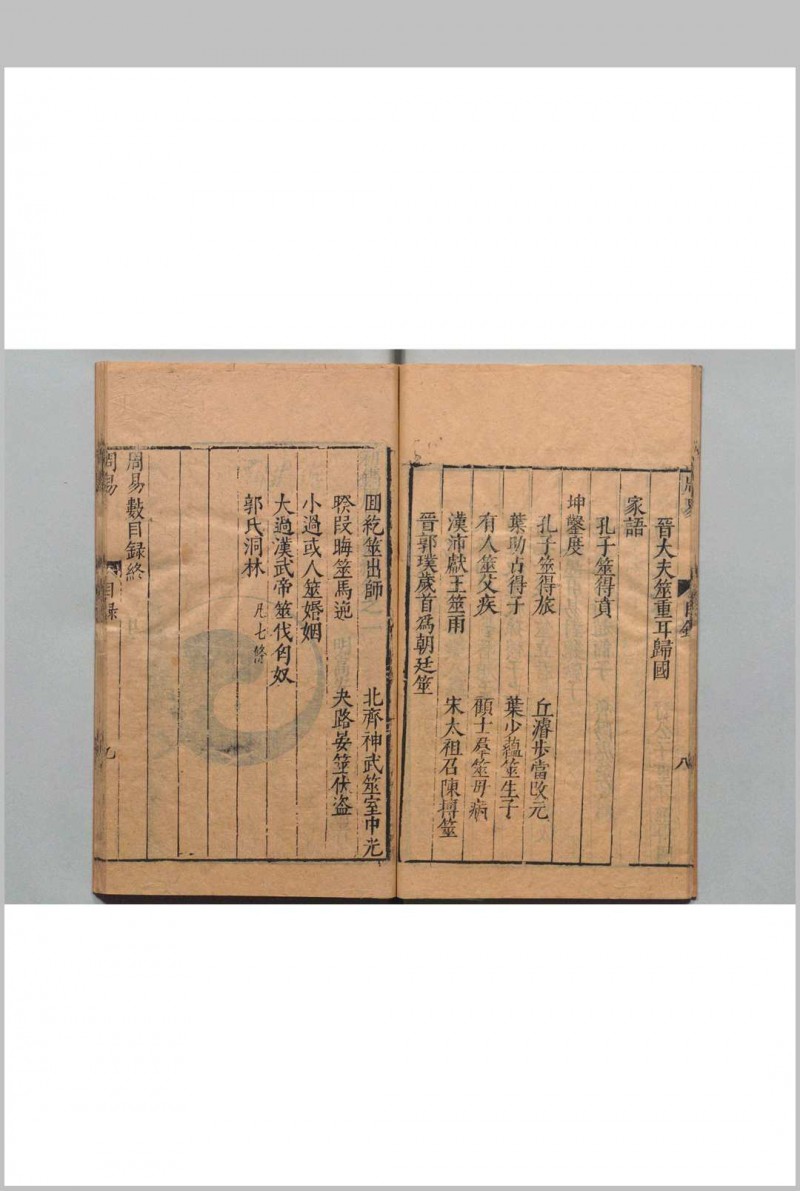 周易
目錄
八
晉大夫筮重耳歸國
家語
孔子筮得賁
坤鑿度
孔子筮得旅
丘濬步當改元
葉助占得子
葉少蘊筮生子
有人筮父疾
顧士羣筮母病
漢沛獻王筮雨
宋太祖召陳摶筮
晉郭璞歲首爲朝廷筮
回紇筮出師
北齊神武筮室中光
睽段晦筮馬逸
夬路晏筮伏盜
小過或人筮婚姻
大過漢武帝筮伐匈奴
郭氏洞林
凡七條
周易數目録終
周易
目録
九